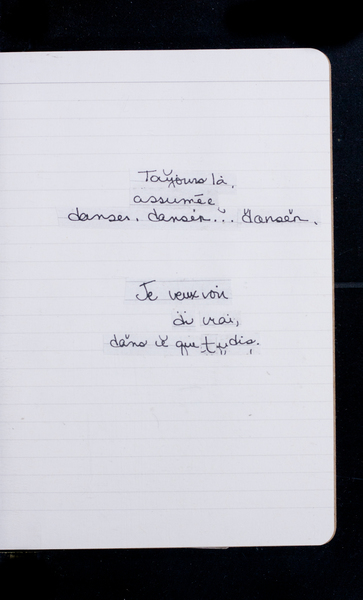 Toujours là.
assumée
danser. danser... danser.
Je veux voir
di vrai,
dans ce que tu dis.